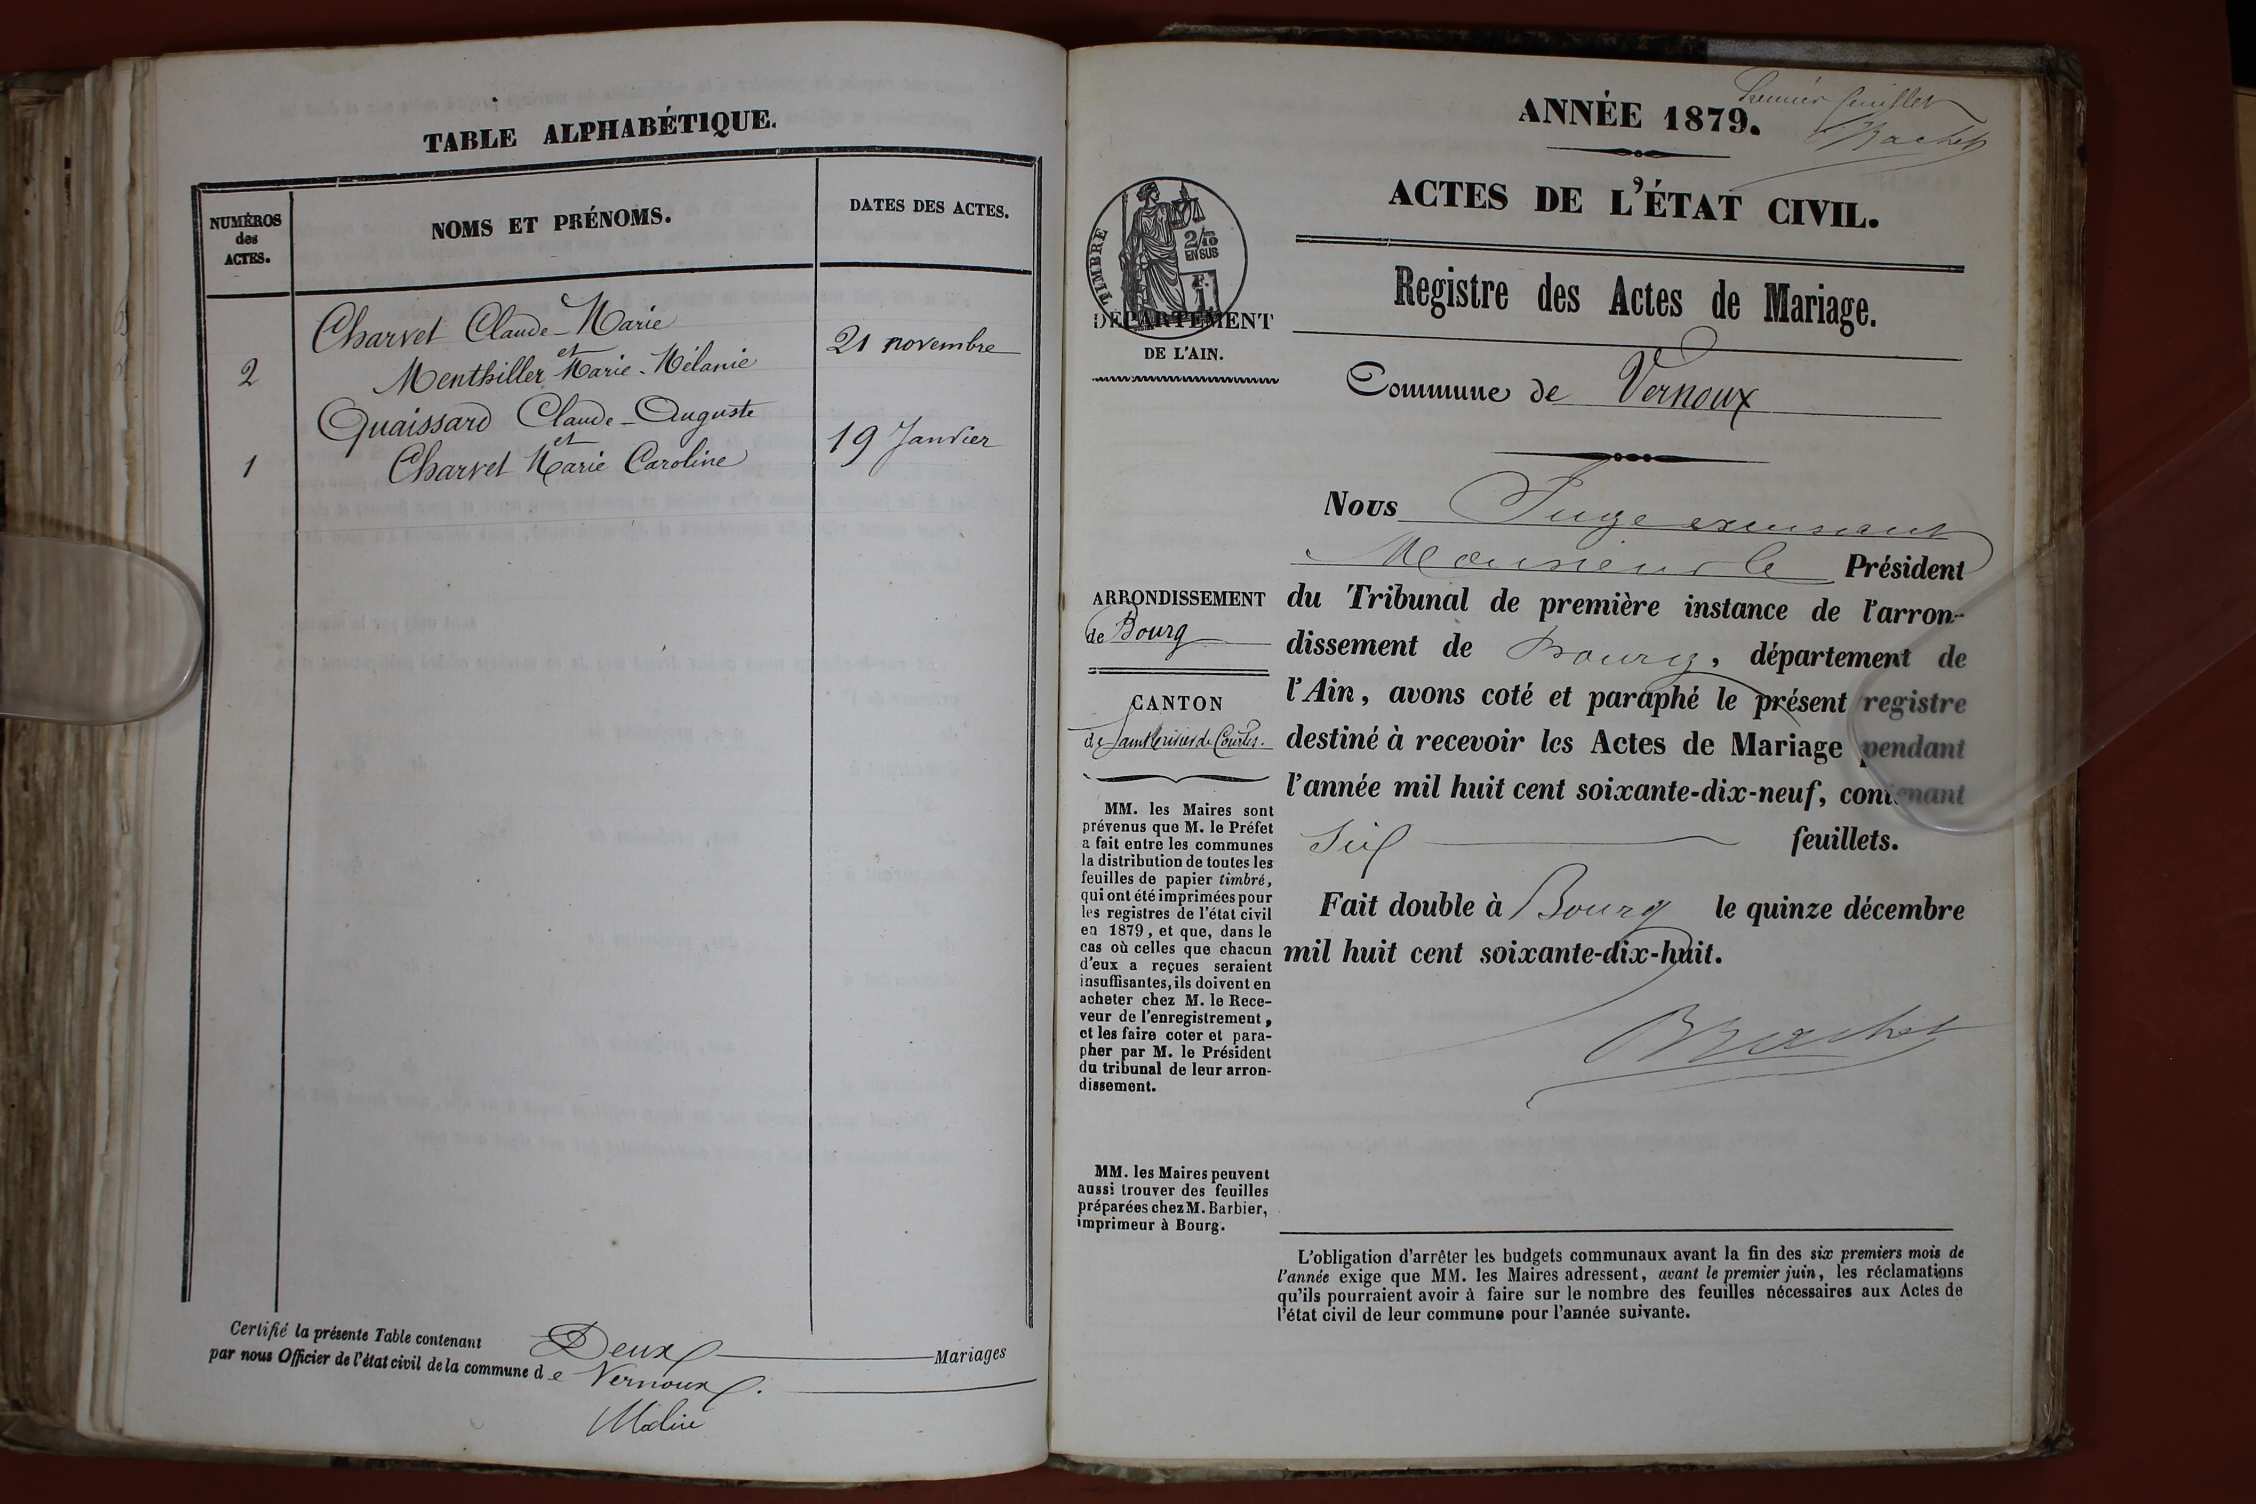 TABLE ALPHABÉTIQUE.
NUMÉROS
des
ACTES.
NOMS ET PRÉNOMS.
DATES DES ACTES.
Charvet Claude-Marie
et
2 Menthiller Marie-Mélanie
21 novembre
Quaissard Claude-Auguste
et
1 Charvet Marie Caroline
19 Janvier
Certifié la présente Table contenant Deux Mariages
par nous Officier de l'état civil de la commune de Vernoux.
ANNÉE 1879.
Premier feuillet
ACTES DE L'ÉTAT CIVIL.
TIMBRE
2/10
EN SUS
DÉPARTEMENT
DE L'AIN.
Registre des Actes de Mariage.
Commune de Vernoux
ARRONDISSEMENT
de Bourg
CANTON
de Saint Trivier de Courtes.
MM. les Maires sont
prévenus que M. le Préfet
a fait entre les communes
la distribution de toutes les
feuilles de papier timbré,
qui ont été imprimées pour
les registres de l'état civil
en 1879, et que, dans le
cas où celles que chacun
d'eux a reçues seraient
insuffisantes, ils doivent en
acheter chez M. le Rece-
veur de l'enregistrement,
et les faire coter et para-
pher par M. le Président
du tribunal de leur arron-
dissement.
MM. les Maires peuvent
aussi trouver des feuilles
préparées chez M. Barbier,
imprimeur à Bourg.
Nous Juge
Monsieur le Président
du Tribunal de première instance de l'arron-
dissement de Bourg, département de
l'Ain, avons coté et paraphé le présent registre
destiné à recevoir les Actes de Mariage pendant
l'année mil huit cent soixante-dix-neuf, contenant
Six feuillets.
Fait double à Bourg le quinze décembre
mil huit cent soixante-dix-huit.
L'obligation d'arrêter les budgets communaux avant la fin des six premiers mois de
l'année exige que MM. les Maires adressent, avant le premier juin, les réclamations
qu'ils pourraient avoir à faire sur le nombre des feuilles nécessaires aux Actes de
l'état civil de leur commune pour l'année suivante.